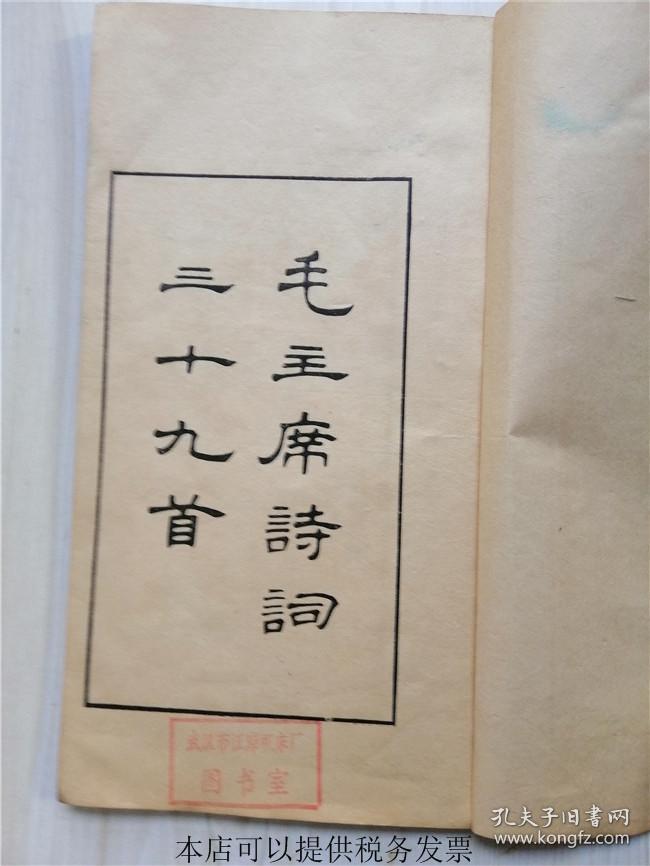 毛主席詩詞
三十九首
武汉市江岸机床厂
图书室
孔夫子旧书网
www.kongfz.com
本店可以提供税务发票